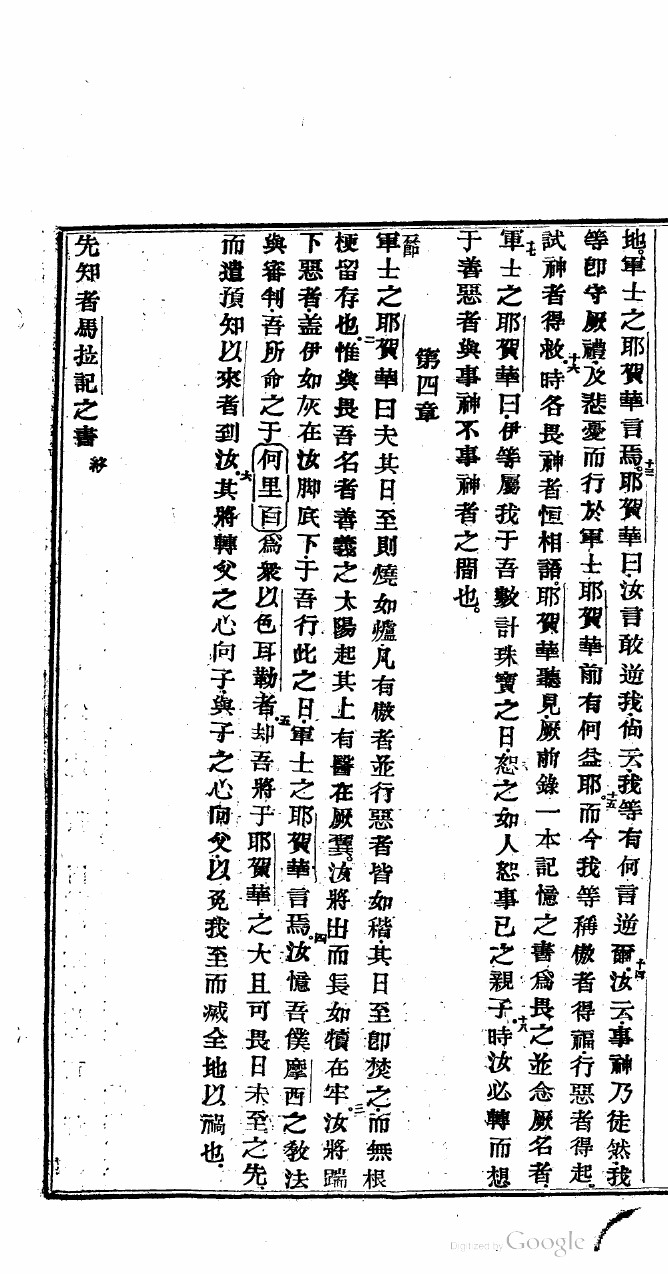 地。軍士之耶賀華言焉。十三耶賀華曰、汝言敢逆我、尙云、我等有何言逆爾。十四汝云、事神乃徒然、我
等卽守厥禮、及悲憂而行於軍士耶賀華前有何益耶。十五而今我等稱傲者得福、行惡者得起。
試神者得救。十六時各畏神者恒相語。耶賀華聽見、厥前錄一本記憶之書、爲畏之並念厥名者。
十七軍士之耶賀華曰、伊等屬我于吾數計珠寶之日、恕之如人恕事已之親子。十八時汝必轉而想
于善惡者與事神不事神者之間也。
第四章
一節軍士之耶賀華曰、夫其日至則燒如爐、凡有傲者並行惡者皆如稭、其日至卽焚之、而無根
梗留存也。二惟與畏吾名者善義之太陽起、其上有醫在厥翼。汝將出而長如犢在牢。三汝將踹
下惡者、蓋伊如灰在汝脚底下、于吾行此之日。軍士之耶賀華言焉。四汝憶吾僕摩西之教法
與審判、吾所命之于何里百爲衆以色耳勒者。五却吾將于耶賀華之大且可畏日未至之先、
而遣預知以來者到汝。六其將轉父之心向子、與子之心向父、以免我至而滅全地以禍也。
先知者馬拉記之書 終
Digitized by Google